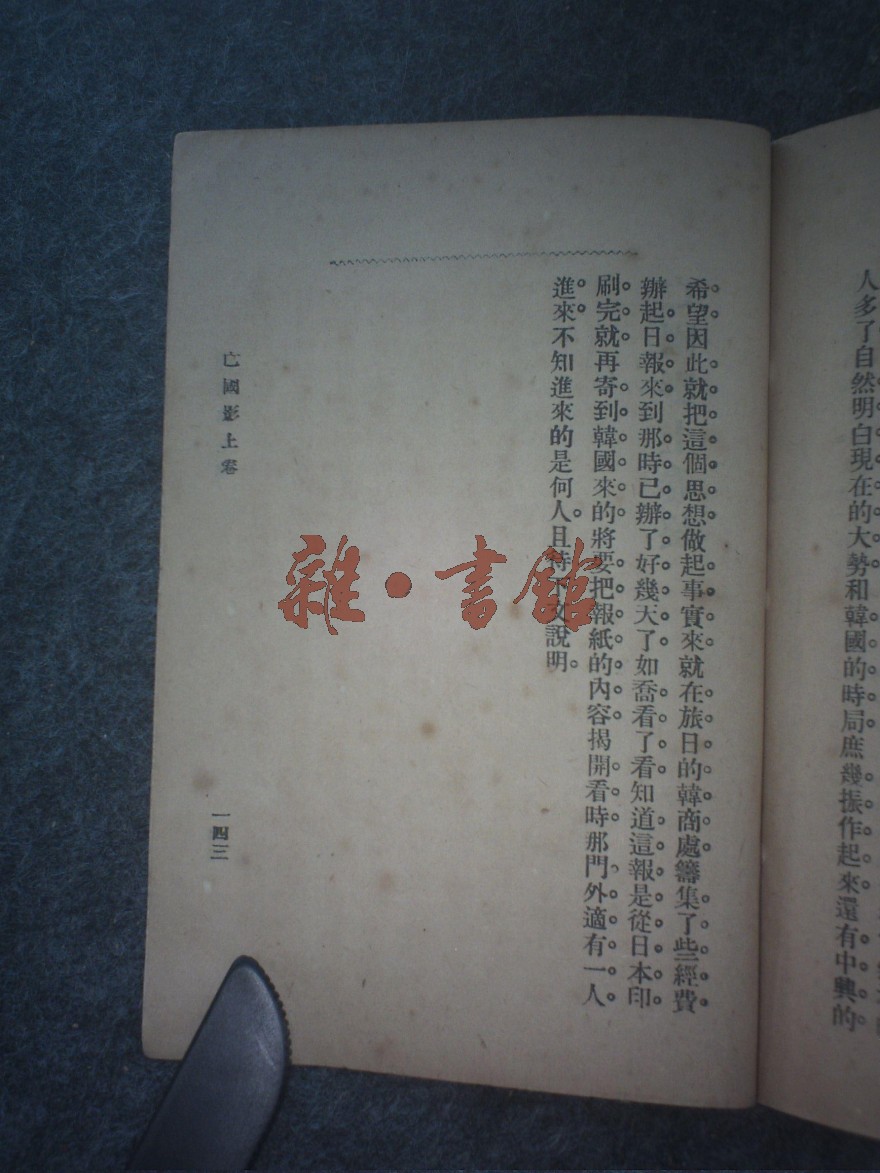 人多了自然明白現在的大勢和韓國的時局庶幾振作起來還有中興的
希望因此就把這個思想做起事實來就在旅日的韓商處籌集了些經費
辦起日報來到那時已辦了好幾天了如喬看了看知道這報是從日本印
刷完就再寄到韓國來的將要把報紙的內容揭開看時那門外適有一人
進來不知進來的是何人且待下文說明
亡國影上卷
一四三
雜·書館